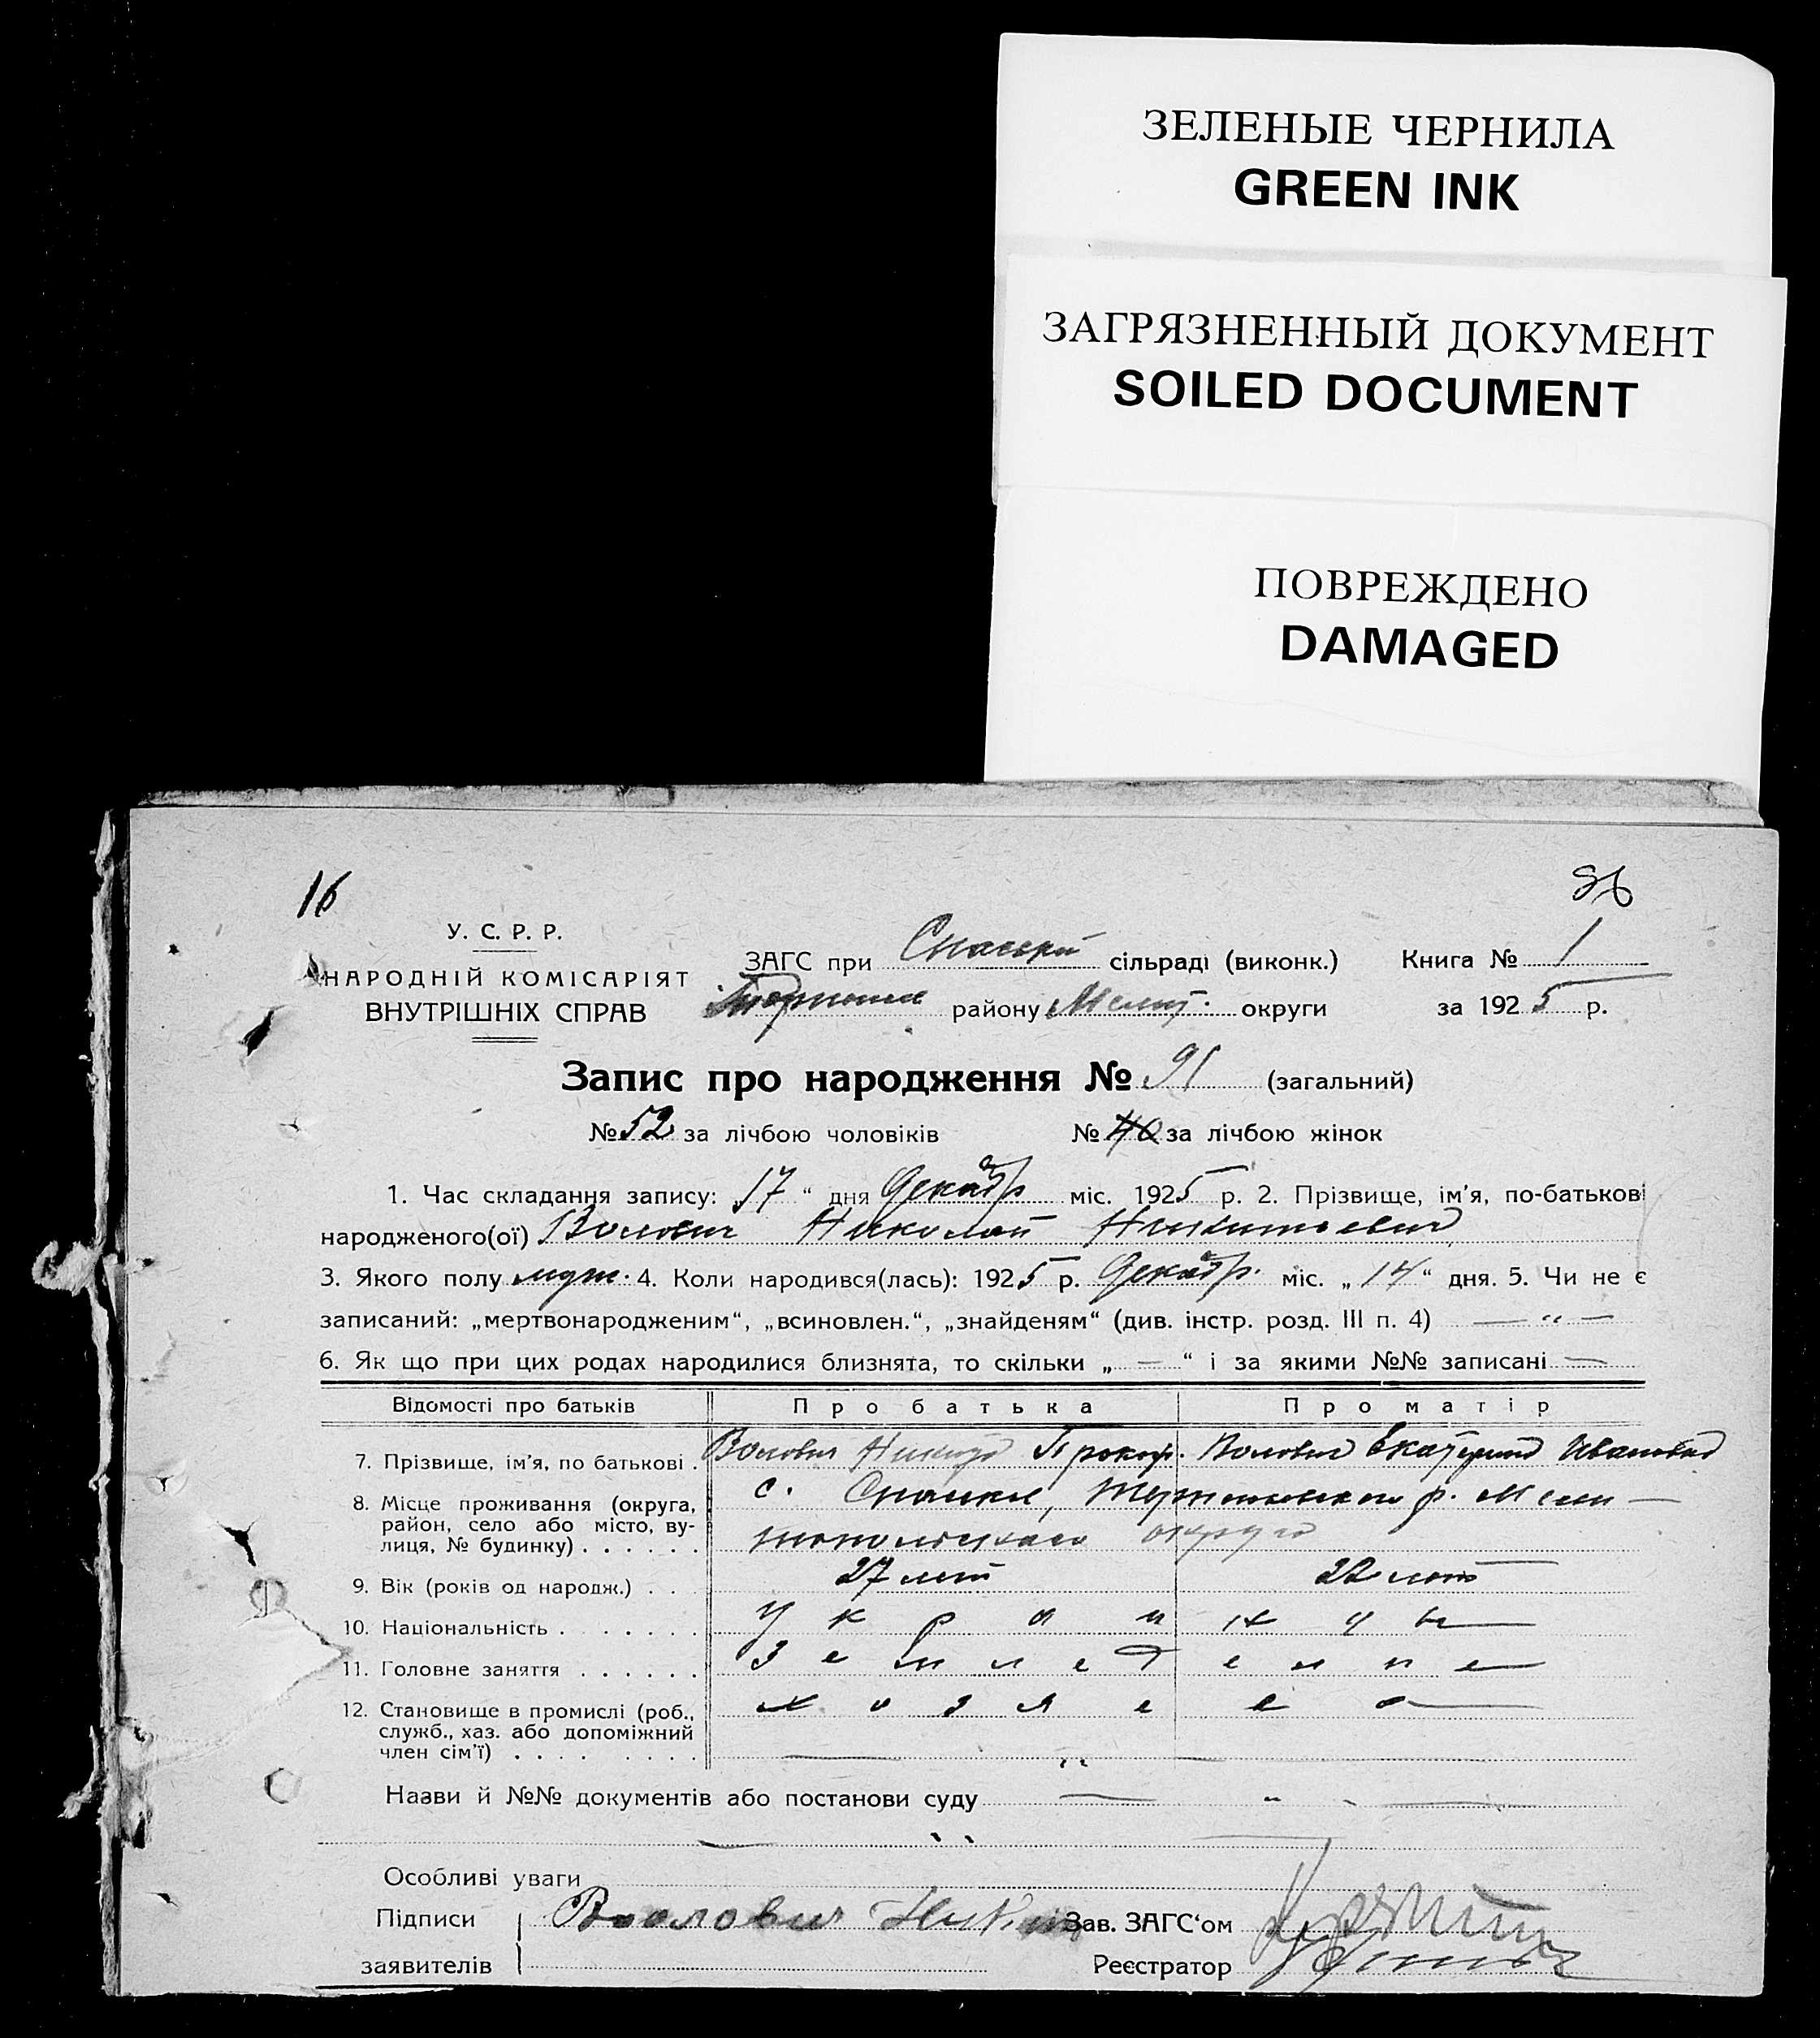 ЗЕЛЕНЫЕ ЧЕРНИЛА
GREEN INK
ЗАГРЯЗНЕННЫЙ ДОКУМЕНТ
SOILED DOCUMENT
ПОВРЕЖДЕНО
DAMAGED
16
У. С. Р. Р.
НАРОДНІЙ КОМІСАРІЯТ
ВНУТРІШНІХ СПРАВ
ЗАГС при сільраді (виконк.) Книга № 1
району Мелит. округи за 1925 р.
Запис про народження № 91 (загальний)
№ 52 за лічбою чоловіків № 40 за лічбою жінок
1. Час складання запису: 17 “ дня Декабр міс. 1925 р. 2. Прізвище, ім’я, по-батькові
народженого(ої) Волович Николай Никитович
3. Якого полу муж. 4. Коли народився(лась): 1925 р. Декабр. міс. „ 14 “ дня. 5. Чи не є
записаний: „мертвонародженим“, „всиновлен.“, „знайденям“ (див. інстр. розд. III п. 4) — “ —
6. Як що при цих родах народилися близнята, то скільки „ — “ і за якими №№ записані —
Відомості про батьків Про батька Про матір
7. Прізвище, ім’я, по батькові . Волович Никита Прокоф. Волович Екатерина Ивановна
8. Місце проживання (округа, район, село або місто, вулиця, № будинку) . . . . . . с. р. Мели—
топольского округа
9. Вік (років од народж.) . . . 27 лет 22 лет
10. Національність . . . . . . . Украинцы
11. Головне заняття . . . . . . Земледелие
12. Становище в промислі (роб., служб., хаз. або допоміжний член сім’ї) . . . . . . . .
Назви й №№ документів або постанови суду — “ —
Особливі уваги
Підписи Воловик Никита Зав. ЗАГС‘ом
заявителів Реєстратор